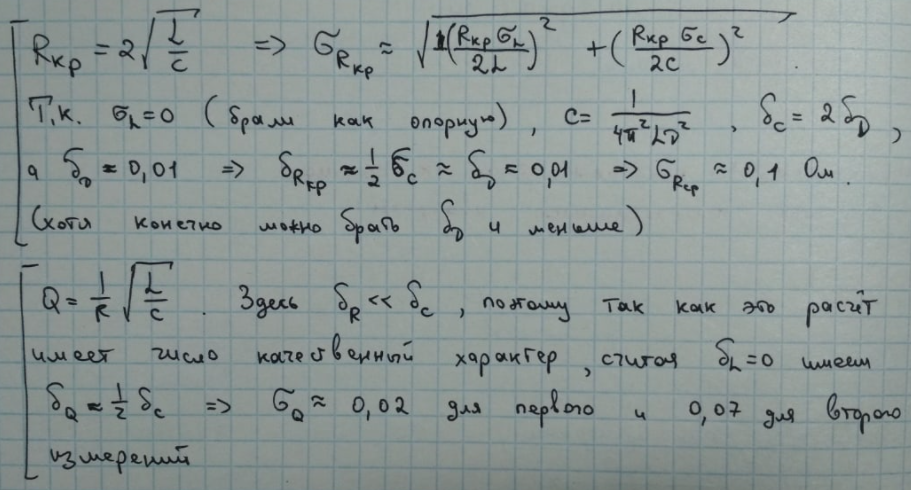 Rкр = 2√(L/C) => σ_Rкр ≈ √((Rкр σ_L / 2L)² + (Rкр σ_C / 2C)²).
Т.к. σ_L = 0 (брали как опорную), C = 1/(4π²Lν²), δ_C = 2δ_ν,
а δ_ν ≈ 0,01 => δ_Rкр ≈ 1/2 σ_C ≈ δ_ν ≈ 0,01 => σ_Rкр ≈ 0,1 Ом.
(хотя конечно можно брать δ_ν и меньше)
Q = 1/R √(L/C). Здесь δ_R << δ_C, поэтому так как это расчёт
имеет число качественный характер, считая δ_L = 0 имеем
δ_Q ≈ 1/2 δ_C => σ_Q ≈ 0,02 для первого и 0,07 для второго
измерений